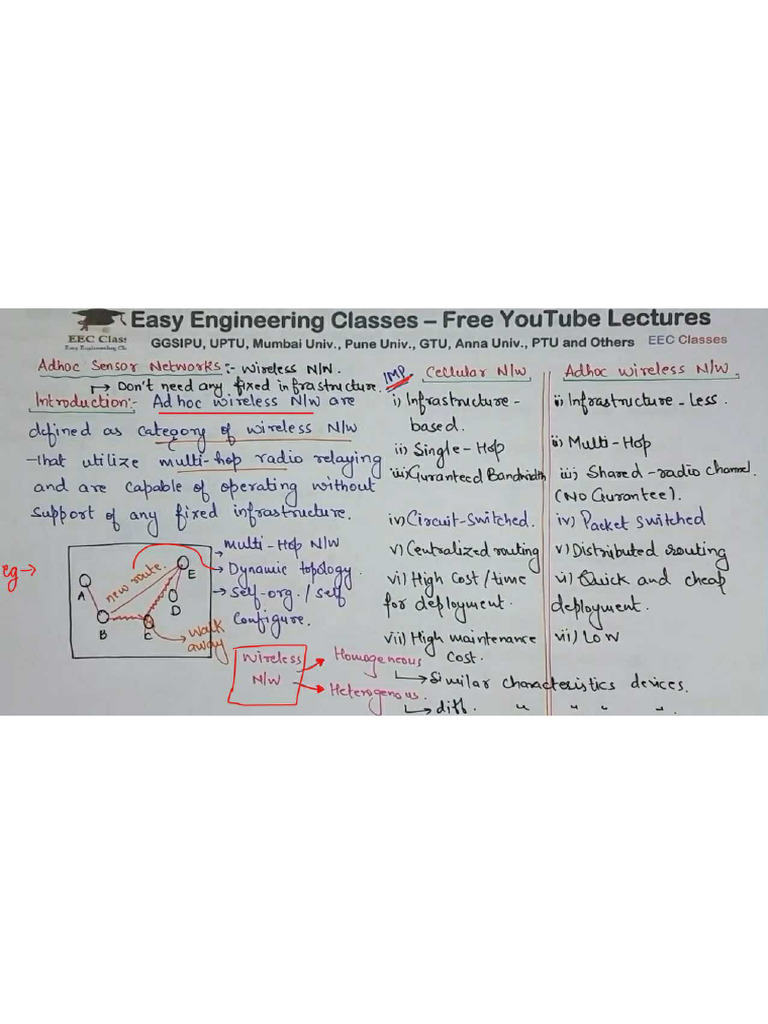 Easy Engineering Classes – Free YouTube Lectures
EEC Class
Easy Engineering Cl
GGSIPU, UPTU, Mumbai Univ., Pune Univ., GTU, Anna Univ., PTU and Others EEC Classes
Adhoc Sensor Networks :- Wireless N/W.
↦ Don't need any fixed infrastructure.
Introduction:- Ad hoc wireless N/W are
defined as category of wireless N/W
-that utilize multi-hop radio relaying
and are capable of operating without
support of any fixed infrastructure.
eg →
A
B
C
D
E
new route.
walk
away
→ Multi-Hop N/W
→ Dynamic topology.
→ Self-org. / self
configure.
Wireless
N/W
Homogeneous
↳ Similar characteristics devices.
Heterogenous.
↳ diff. " " " ".
IMP
Cellular N/W
i) Infrastructure-
based.
ii) Single-Hop
iii) Guranteed Bandwidth
iv) Circuit-Switched.
v) Centralized routing
vi) High Cost / time
for deployment.
vii) High maintenance
Cost.
Adhoc wireless N/W.
i) Infrastructure-Less.
ii) Multi-Hop
iii) Shared-radio Channel.
(No Gurantee).
iv) Packet Switched
v) Distributed routing
vi) Quick and cheap
deployment.
vii) Low